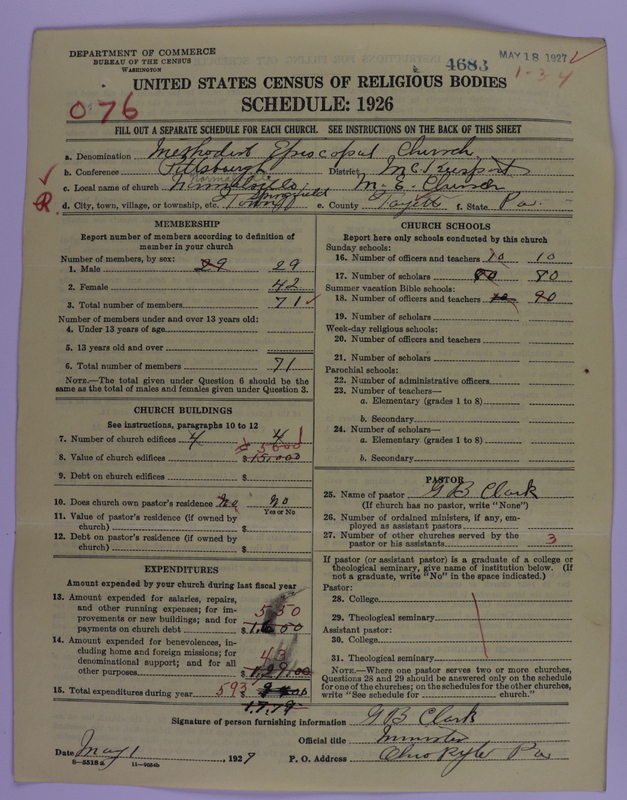 DEPARTMENT OF COMMERCE
BUREAU OF THE CENSUS
WASHINGTON
4683
MAY 18 1927
1-3-4
UNITED STATES CENSUS OF RELIGIOUS BODIES
SCHEDULE: 1926
076
FILL OUT A SEPARATE SCHEDULE FOR EACH CHURCH. SEE INSTRUCTIONS ON THE BACK OF THIS SHEET
a. Denomination Methodist Episcopal Church
b. Conference Pittsburgh District McKeesport
c. Local name of church Normalville M. E. Church
d. City, town, village, or township, etc. Springfield Town e. County Fayette f. State Pa.
MEMBERSHIP
Report number of members according to definition of
member in your church
Number of members, by sex:
1. Male 29 29
2. Female 42
3. Total number of members 71
Number of members under and over 13 years old:
4. Under 13 years of age
5. 13 years old and over
6. Total number of members 71
NOTE.—The total given under Question 6 should be
same as the total of males and females given under Question 3.
CHURCH BUILDINGS
See instructions, paragraphs 10 to 12
7. Number of church edifices 4 4 1
5000
8. Value of church edifices $15,000
9. Debt on church edifices $
10. Does church own pastor's residence No No
Yes or No
11. Value of pastor's residence (if owned by
church) $
12. Debt on pastor's residence (if owned by
church) $
EXPENDITURES
Amount expended by your church during last fiscal year
13. Amount expended for salaries, repairs,
and other running expenses; for im-
provements or new buildings; and for
payments on church debt 550 $
14. Amount expended for benevolences, in-
cluding home and foreign missions; for
denominational support; and for all
other purposes 43 $
15. Total expenditures during year 593 $
CHURCH SCHOOLS
Report here only schools conducted by this church
Sunday schools:
16. Number of officers and teachers 10 10
17. Number of scholars 80 80
Summer vacation Bible schools:
18. Number of officers and teachers 10 90
19. Number of scholars
Week-day religious schools:
20. Number of officers and teachers
21. Number of scholars
Parochial schools:
22. Number of administrative officers
23. Number of teachers—
a. Elementary (grades 1 to 8)
b. Secondary
24. Number of scholars—
a. Elementary (grades 1 to 8)
b. Secondary
PASTOR
25. Name of pastor G B Clark
(If church has no pastor, write "None")
26. Number of ordained ministers, if any, em-
ployed as assistant pastors
27. Number of other churches served by the
pastor or his assistants 3
If pastor (or assistant pastor) is a graduate of a college or
theological seminary, give name of institution below. (If
not a graduate, write "No" in the space indicated.)
Pastor:
28. College
29. Theological seminary
Assistant pastor:
30. College
31. Theological seminary
NOTE.—Where one pastor serves two or more churches,
Questions 28 and 29 should be answered only on the schedule
for one of the churches; on the schedules for the other churches,
write "See schedule for church."
Signature of person furnishing information G B Clark
Official title Minister
Date May 1, 1927 P. O. Address Ohio Pyle Pa
8-5518a 11-9554b